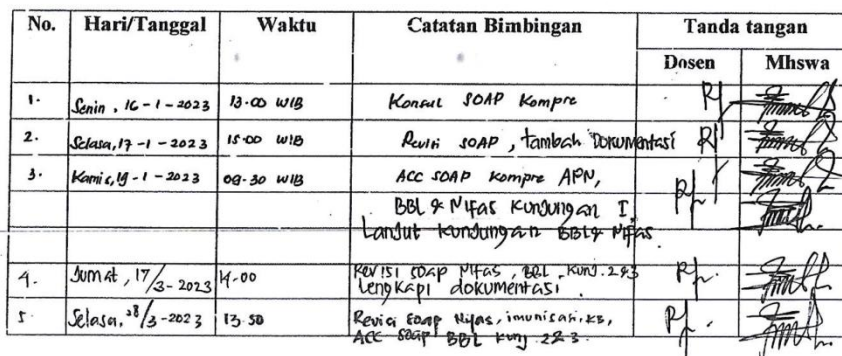 No. Hari/Tanggal Waktu Catatan Bimbingan Tanda tangan
Dosen Mhswa
1. Senin, 16-1-2023 13.00 WIB Konsul SOAP Kompre
2. Selasa, 17-1-2023 15.00 WIB Revisi SOAP, tambah Dokumentasi
3. Kamis, 19-1-2023 09.30 WIB ACC SOAP Kompre APN,
BBL & Nifas Kunjungan I,
Lanjut Kunjungan BBL & Nifas
4. Jumat, 17/3-2023 14.00 Revisi soap Nifas, BBL, Kunj. 2&3
Lengkapi dokumentasi
5 Selasa, 28/3-2023 13.50 Revisi soap Nifas, imunisasi, KB,
ACC soap BBL Kunj 2&3.